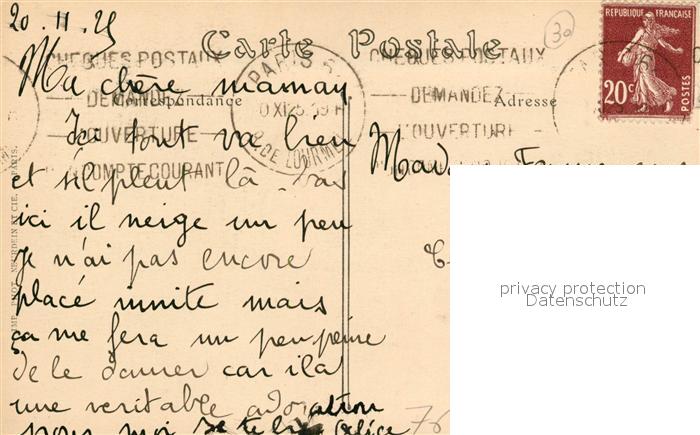 20.11.25
30
RÉPUBLIQUE FRANÇAISE
20c
POSTES
Carte Postale
CHEQUES POSTAUX
DEMANDEZ
L'OUVERTURE
COMPTE COURANT
CHEQUES POSTAUX
DEMANDEZ
L'OUVERTURE
PARIS
XI 25
Correspondance
Adresse
Ma chère maman
Ici tout va bien
et s'il pleut là bas
ici il neige un peu
Je n'ai pas encore
placé mais
ça me fera un peu peine
de le donner car il a
une veritable adoration
pour moi
Mad
NEURDEIN ET CIE. PARIS.
privacy protection
Datenschutz
76